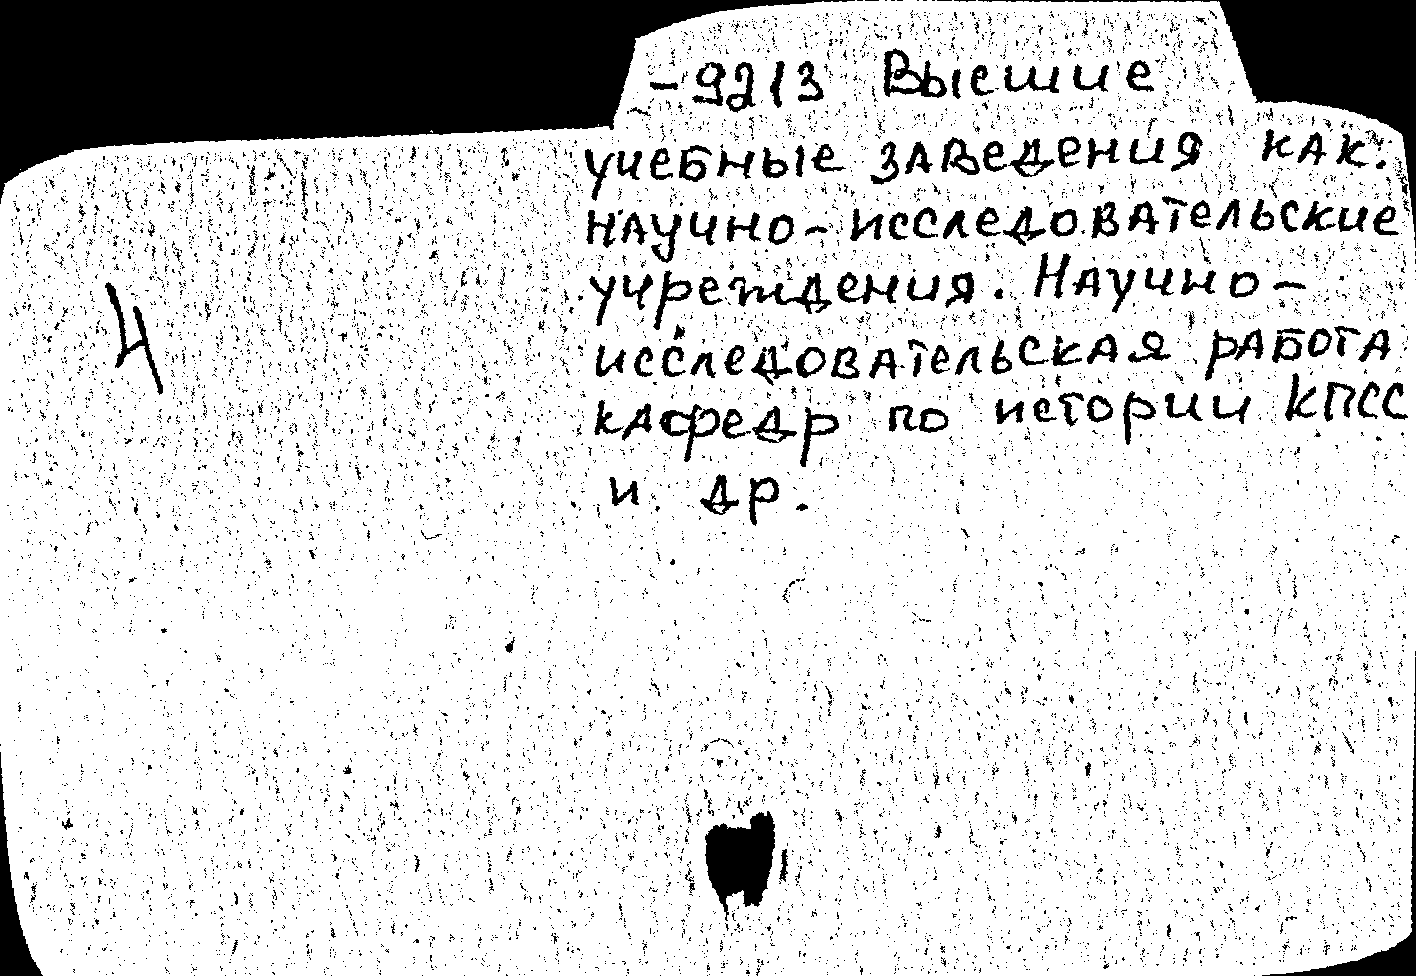 -9213 Высшие
учебные заведения как
научно-исследовательские
учреждения. Научно-
исследовательская работа
кафедр по истории КПСС
и др.
4